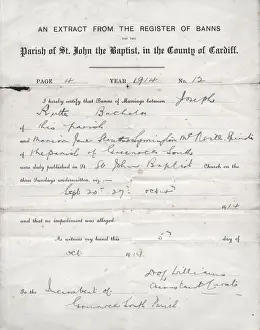 AN EXTRACT FROM THE REGISTER OF BANNS
FOR THE
Parish of St. John the Baptist, in the County of Cardiff.
PAGE 4 YEAR 1914 No. 12
I hereby certify that Banns of Marriage between Joseph
Bachelor
of this parish
and Jane
of the parish of Greenock South
were duly published in St. John Baptist Church on the
three Sundays undermentioned, viz.:—
Sept 20th 27th Oct
1914
and that no impediment was alleged.
As witness my hand this 5th day of
Oct 1914
Williams
Assistant Curate
To the Incumbent of
Greenock South Parish